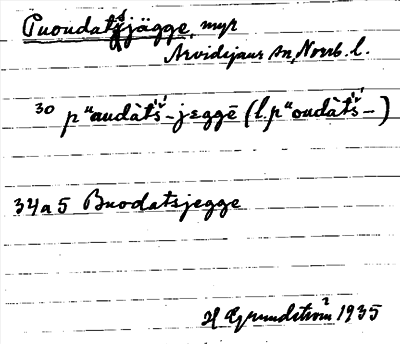 Puoudatsjägge, myr
Arvidsjaurs sn, Norrb. l.
30 pᵘaudàtś-jeggē (l. pᵘoudàtś-)
34a5 Buodatsjegge
H Grundström 1935